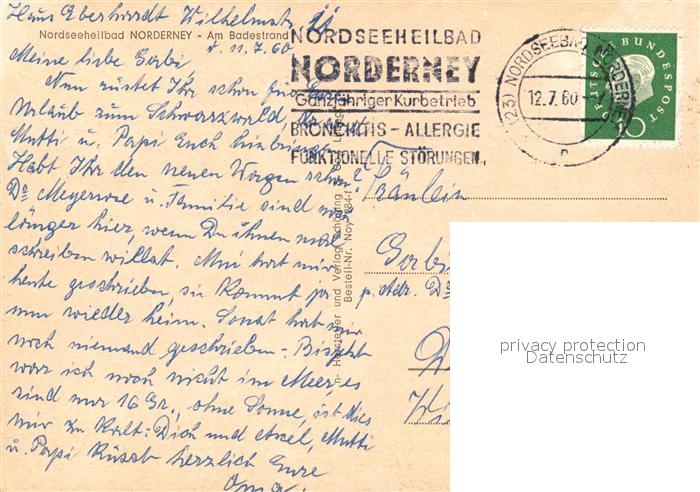 Haus Eberhardt Wilhelmstr.
Nordseeheilbad NORDERNEY - Am Badestrand
d. 11.7.60
Meine liebe Gabi
Nun rüstet Ihr schon für
Urlaub zum Schwarzwald,
Mutti u. Papi Euch hinbringen
Habt Ihr den neuen Wagen schon?
Dr Meyerrose u. Familie sind noch
länger hier, wenn Du ihnen mal
schreiben willst. Mui hat mir
heute geschrieben, sie kommt ja
nun wieder heim. Sonst hat mir
noch niemand geschrieben. Bis jetzt
war ich noch nicht im Meer, es
sind nur 16 Gr., ohne Sonne, ist dies
mir zu kalt. Dich und Axel, Mutti
u. Papi küsst herzlich Eure
Oma.
NORDSEEHEILBAD
NORDERNEY
Ganzjähriger Kurbetrieb
BRONCHITIS - ALLERGIE
FUNKTIONELLE STÖRUNGEN
(23) NORDSEEBAD NORDERNEY
12.7.60
n
DEUTSCHE BUNDESPOST
10
Hersteller und Verlag Schöning
Bestell-Nr. Noy
Fräulein
Gabi
p. Adr. Dr
privacy protection
Datenschutz